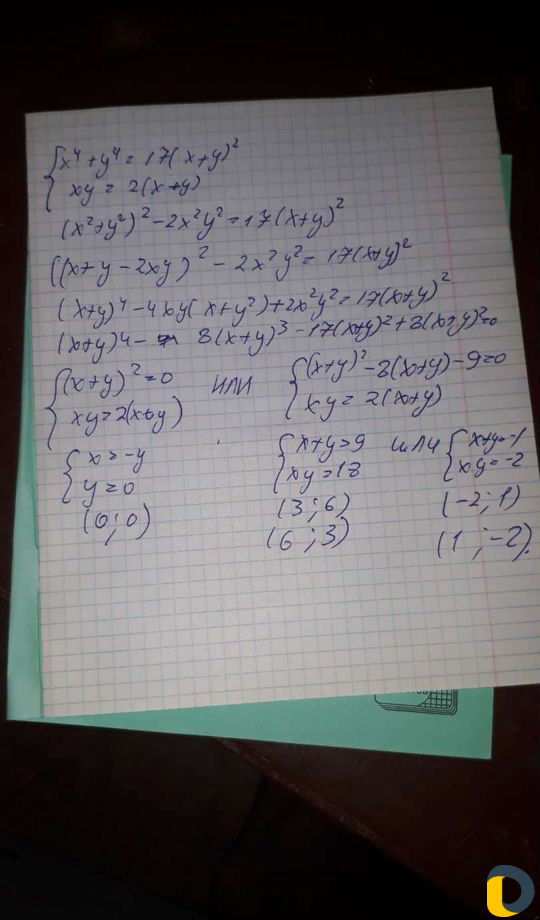 {x⁴ + y⁴ = 17(x+y)²
{xy = 2(x+y)
(x²+y²)² - 2x²y² = 17(x+y)²
((x+y - 2xy)² - 2x²y² = 17(x+y)²
(x+y)⁴ - 4xy(x+y²) + 2x²y² = 17(x+y)²
(x+y)⁴ - 8(x+y)³ - 17(x+y)² + 8(x+y)² = 0
{(x+y)² = 0 или {(x+y)² - 8(x+y) - 9 = 0
{xy = 2(x+y) {xy = 2(x+y)
{x = -y {x+y = 9 или {x+y = -1
{y = 0 {xy = 18 {xy = -2
(0; 0) (3; 6) (-2; 1)
(6; 3) (1; -2).